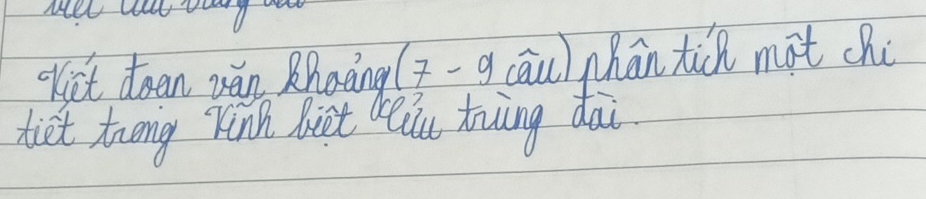 Viết đoạn văn khoảng (7 - 9 câu) phân tích một chi
tiết trong Vĩnh biệt Cửu trùng đài.